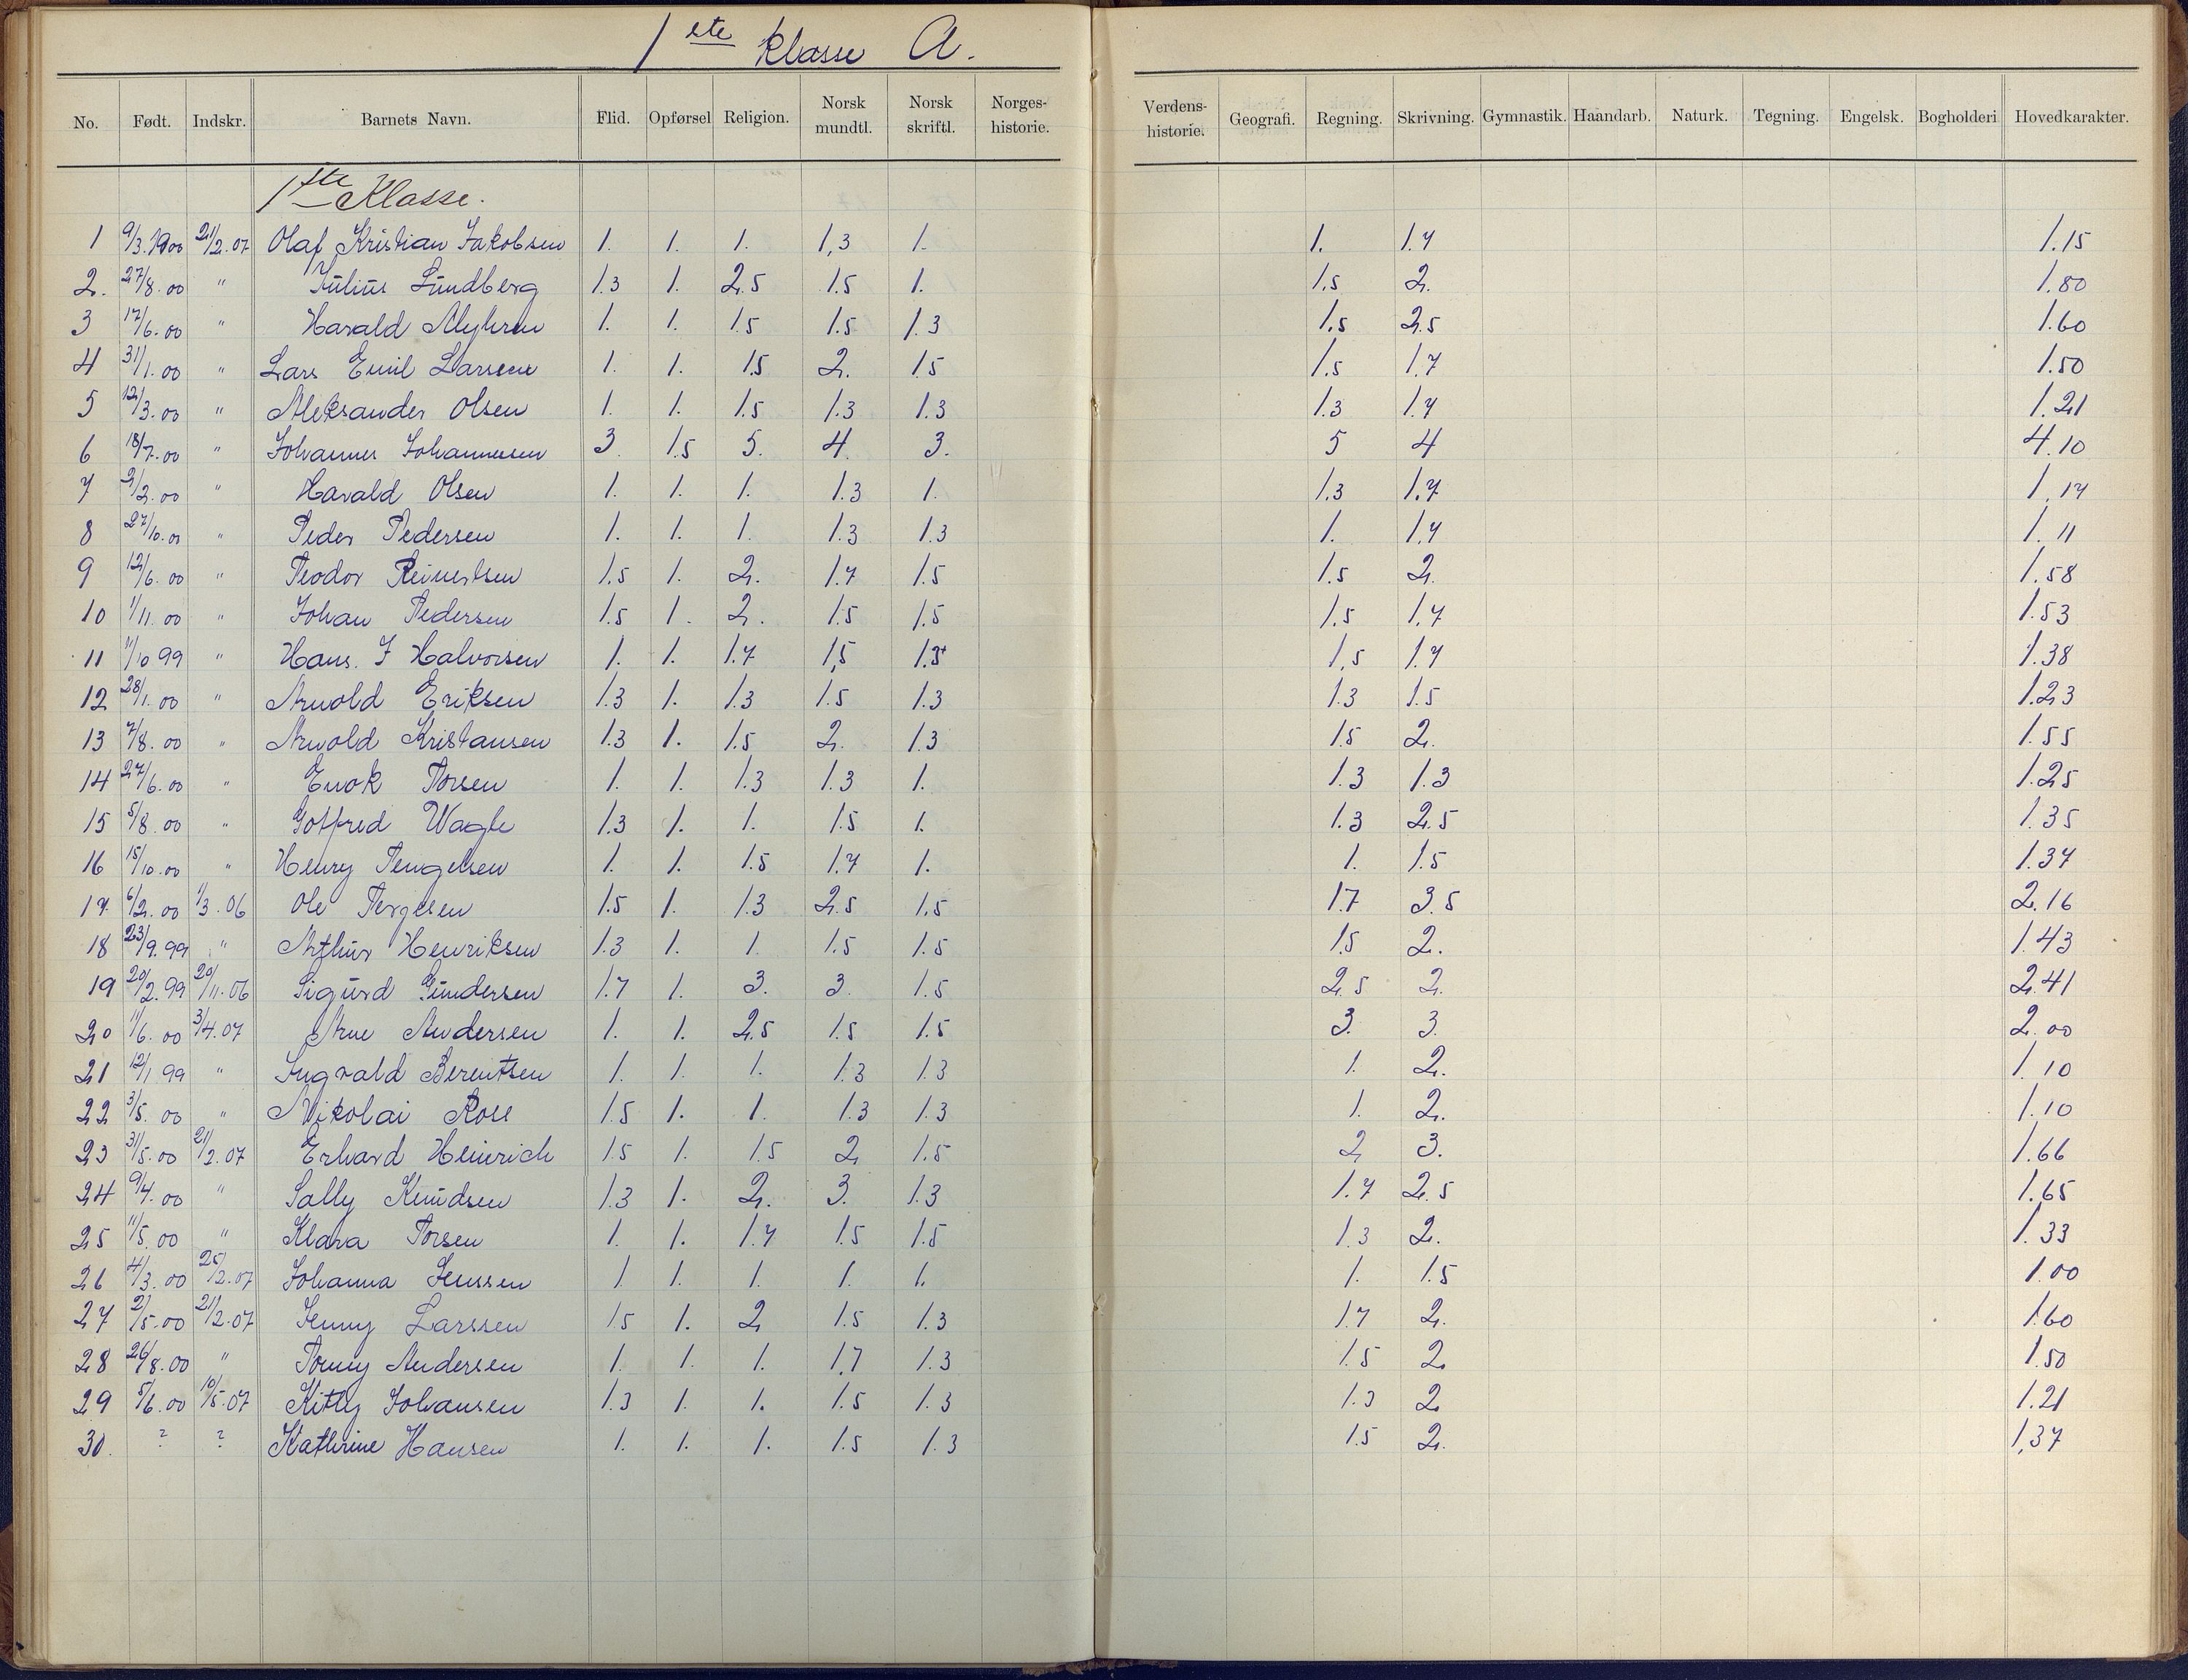 1ste Klasse A.
No. Født. Indskr. Barnets Navn. Flid. Opførsel Religion. Norsk mundtl. Norsk skriftl. Norges-historie. Verdens-historie. Geografi. Regning. Skrivning. Gymnastik. Haandarb. Naturk. Tegning. Engelsk. Bogholderi Hovedkarakter.
1ste Klasse.
1 9/3.1900 21/2.07 Olaf Kristian Jakobsen 1. 1. 1. 1,3 1. 1. 1.7 1.15
2. 27/8.00 " Julius Lundberg 1.3 1. 2.5 1.5 1. 1.5 2. 1.80
3 17/6.00 " Harald 1. 1. 1.5 1.5 1.3 1.5 2.5 1.60
4 31/1.00 " Lars Emil Larsen 1. 1. 1.5 2. 1.5 1.5 1.7 1.50
5 12/3.00 " Aleksander Olsen 1. 1. 1.5 1.3 1.3 1.3 1.7 1.21
6 18/7.00 " Johannes Johannesen 3. 1.5 5. 4. 3. 5 4 4.10
7 2/2.00 " Harald Olsen 1. 1. 1. 1.3 1. 1.3 1.7 1.17
8 27/10.00 " Peder Pedersen 1. 1. 1. 1.3 1.3 1. 1.7 1.11
9 12/6.00 " Teodor Reinertsen 1.5 1. 2. 1.7 1.5 1.5 2. 1.58
10 1/11.00 " Johan Pedersen 1.5 1. 2. 1.5 1.5 1.5 1.7 1.53
11 11/10 99 " Hans. J Halvorsen 1. 1. 1.7 1,5 1.3+ 1,5 1.7 1.38
12 28/1.00 " Arnold Eriksen 1.3 1. 1.3 1.5 1.3 1.3 1.5 1.23
13 7/8.00 " Arnold Kristansen 1.3 1. 1.5 2. 1.3 1.5 2. 1.55
14 27/6.00 " Enok Torsen 1. 1. 1.3 1.3 1. 1.3 1.3 1.25
15 5/8.00 " Gotfred Wagle 1.3 1. 1. 1.5 1. 1.3 2.5 1.35
16 15/10.00 " Henry Tengelsen 1. 1. 1.5 1.7 1. 1. 1.5 1.37
17. 6/2.00 1/3.06 Ole Tergesen 1.5 1. 1.3 2.5 1.5 1.7 3.5 2.16
18 23/9.99 " Arthur Henriksen 1.3 1. 1. 1.5 1.5 1.5 2. 1.43
19 20/2.99 20/11.06 Sigurd Gundersen 1.7 1. 3. 3. 1.5 2.5 2. 2.41
20 11/6.00 3/4.07 Arne Andersen 1. 1. 2.5 1.5 1.5 3. 3. 2.00
21 12/1 99 " Ingvald Berentsen 1. 1. 1. 1.3 1.3 1. 2. 1.10
22 3/5.00 " Nikolai Rose 1.5 1. 1. 1.3 1.3 1. 2. 1.10
23 31/5.00 21/2.07 Erhard Heinrich 1.5 1. 1.5 2 1.5 2 3. 1.66
24 9/4.00 " Sally Knudsen 1.3 1. 2. 3. 1.3 1.7 2.5 1.65
25 11/5.00 " Klara Torsen 1. 1. 1.7 1.5 1.5 1.3 2. 1.33
26 4/3.00 25/2.07 Johanna Jenssen 1. 1. 1. 1. 1. 1. 1.5 1.00
27 2/5.00 21/2.07 Jenny Larssen 1.5 1. 2 1.5 1.3 1.7 2. 1.60
28 26/8.00 " Tonny Andersen 1. 1. 1. 1.7 1.3 1.5 2. 1.50
29 5/6.00 10/5.07 Kitty Johansen 1.3 1. 1. 1.5 1.3 1.3 2 1.21
30. ? ? Kathrine Hansen 1. 1. 1. 1.5 1.3 1.5 2. 1,37